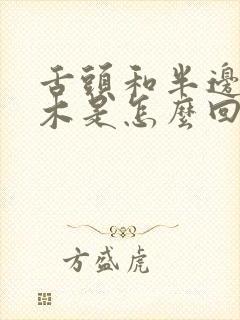 舌頭和半邊
木是怎麼回
方盛虎